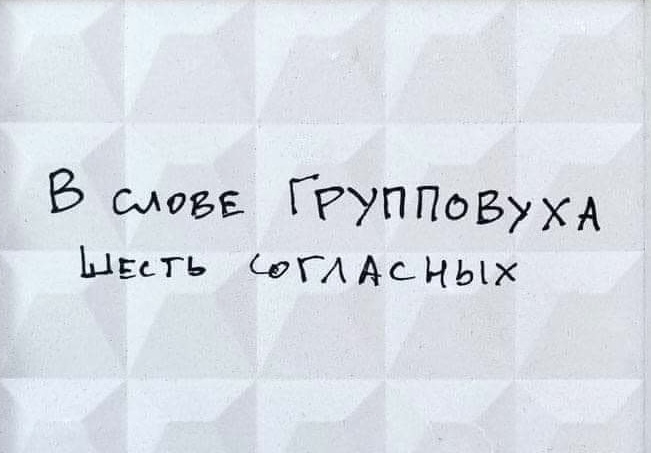 В слове Групповуха
шесть согласных